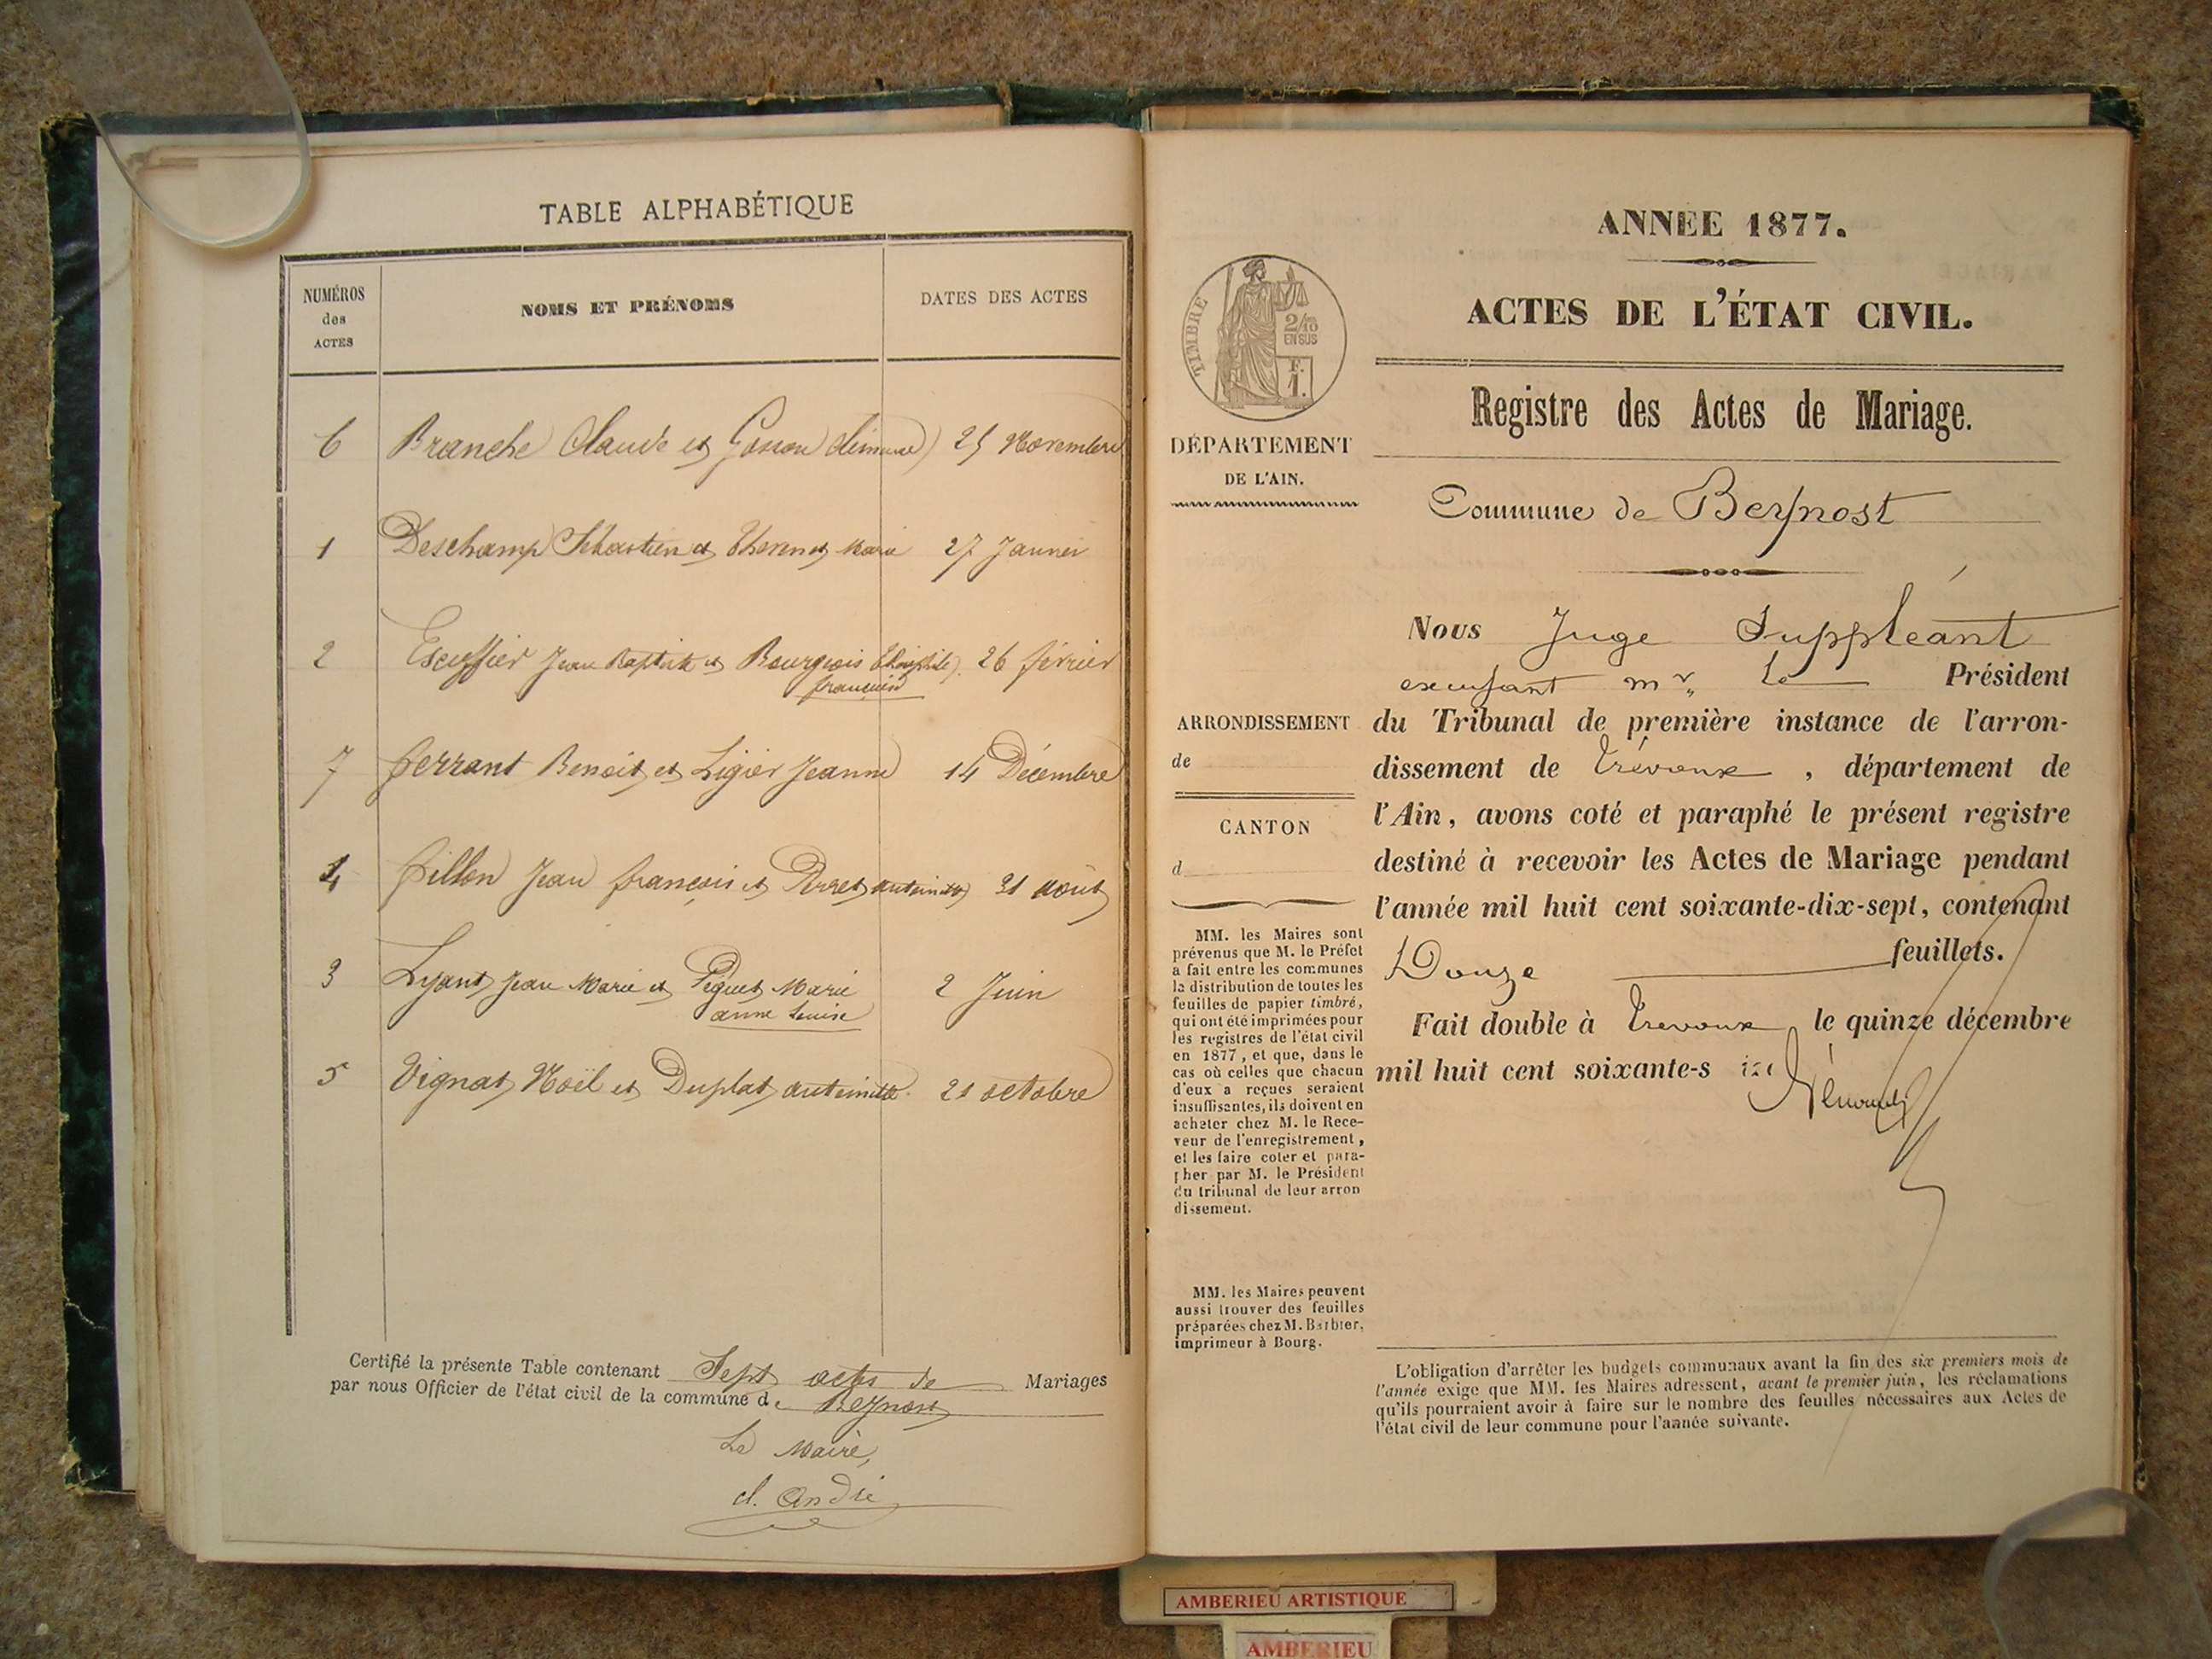 TABLE ALPHABÉTIQUE
NUMÉROS des ACTES
NOMS ET PRÉNOMS
DATES DES ACTES
6 Branche Claude et 25 Novembre
1 Deschamp Sébastien et Thevenet Marie 27 Janvier
2 Escuffier Jean Baptiste et Bourgeois Théophile 26 février
françoise
7 ferrant Benoit et Ligier Jeanne 14 Décembre
4 fillon Jean françois et Perret antoinette 31 août
3 Lyant Jean Marie et Piquet Marie 2 Juin
anne Louise
5 Vignat Noël et Duplat antoinette 21 octobre
Certifié la présente Table contenant Sept actes de Mariages
par nous Officier de l'état civil de la commune de Beynost
Le Maire,
cl. André
ANNÉE 1877.
ACTES DE L'ÉTAT CIVIL.
Registre des Actes de Mariage.
TIMBRE
2/10
EN SUS
F.
1.
DÉPARTEMENT
DE L'AIN.
Commune de Beynost
Nous Juge Suppléant
excusant Mr. le Président
du Tribunal de première instance de l'arron-
dissement de Trévoux, département de
l'Ain, avons coté et paraphé le présent registre
destiné à recevoir les Actes de Mariage pendant
l'année mil huit cent soixante-dix-sept, contenant
Douze feuillets.
Fait double à Trevoux, le quinze décembre
mil huit cent soixante-s
ARRONDISSEMENT
de
CANTON
d
MM. les Maires sont
prévenus que M. le Préfet
a fait entre les communes
la distribution de toutes les
feuilles de papier timbré,
qui ont été imprimées pour
les registres de l'état civil
en 1877, et que, dans le
cas où celles que chacun
d'eux a reçues seraient
insuffisantes, ils doivent en
acheter chez M. le Rece-
veur de l'enregistrement,
et les faire coter et para-
pher par M. le Président
du tribunal de leur arron
dissement.
MM. les Maires peuvent
aussi trouver des feuilles
préparées chez M. Barbier,
imprimeur à Bourg.
L'obligation d'arrêter les budgets communaux avant la fin des six premiers mois de
l'année exige que MM. les Maires adressent, avant le premier juin, les réclamations
qu'ils pourraient avoir à faire sur le nombre des feuilles nécessaires aux Actes de
l'état civil de leur commune pour l'année suivante.
AMBERIEU ARTISTIQUE
AMBERIEU